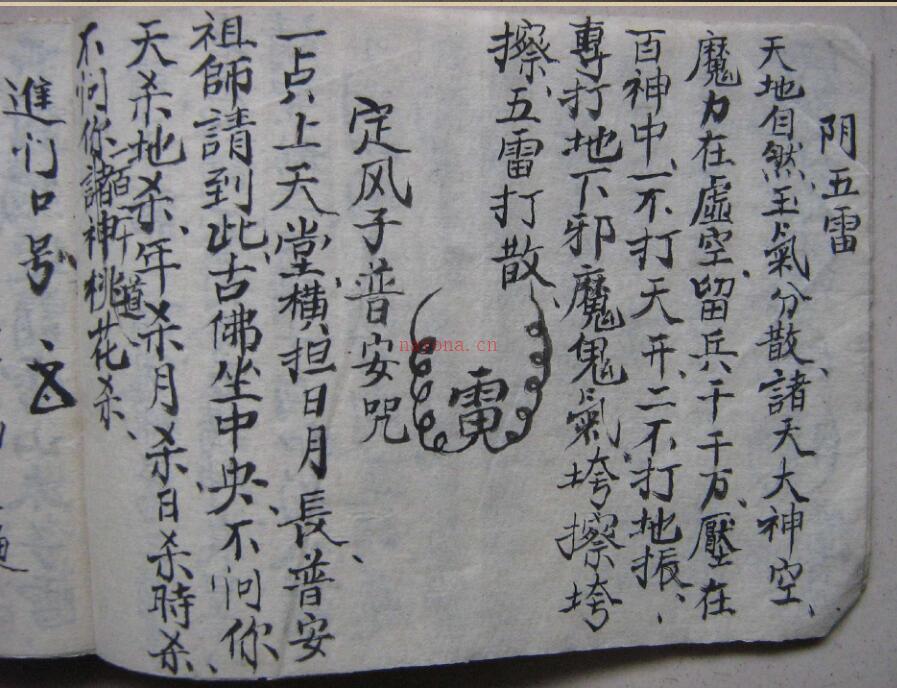 阴五雷
天地自然玉氣分散、諸天大神空、
魔力在虛空留兵千千万、壓在
百神中、一不打天开、二不打地振、
專打地下邪魔鬼氣垮擦垮
擦、五雷打散、
雷
定风子普安咒
一点上天堂、横担日月長、普安
祖師請到此、古佛坐中央、不问你
天杀地杀、年杀月杀日杀時杀、
不问你一百二十道
諸神桃花杀、
進们口号、
nayona.cn